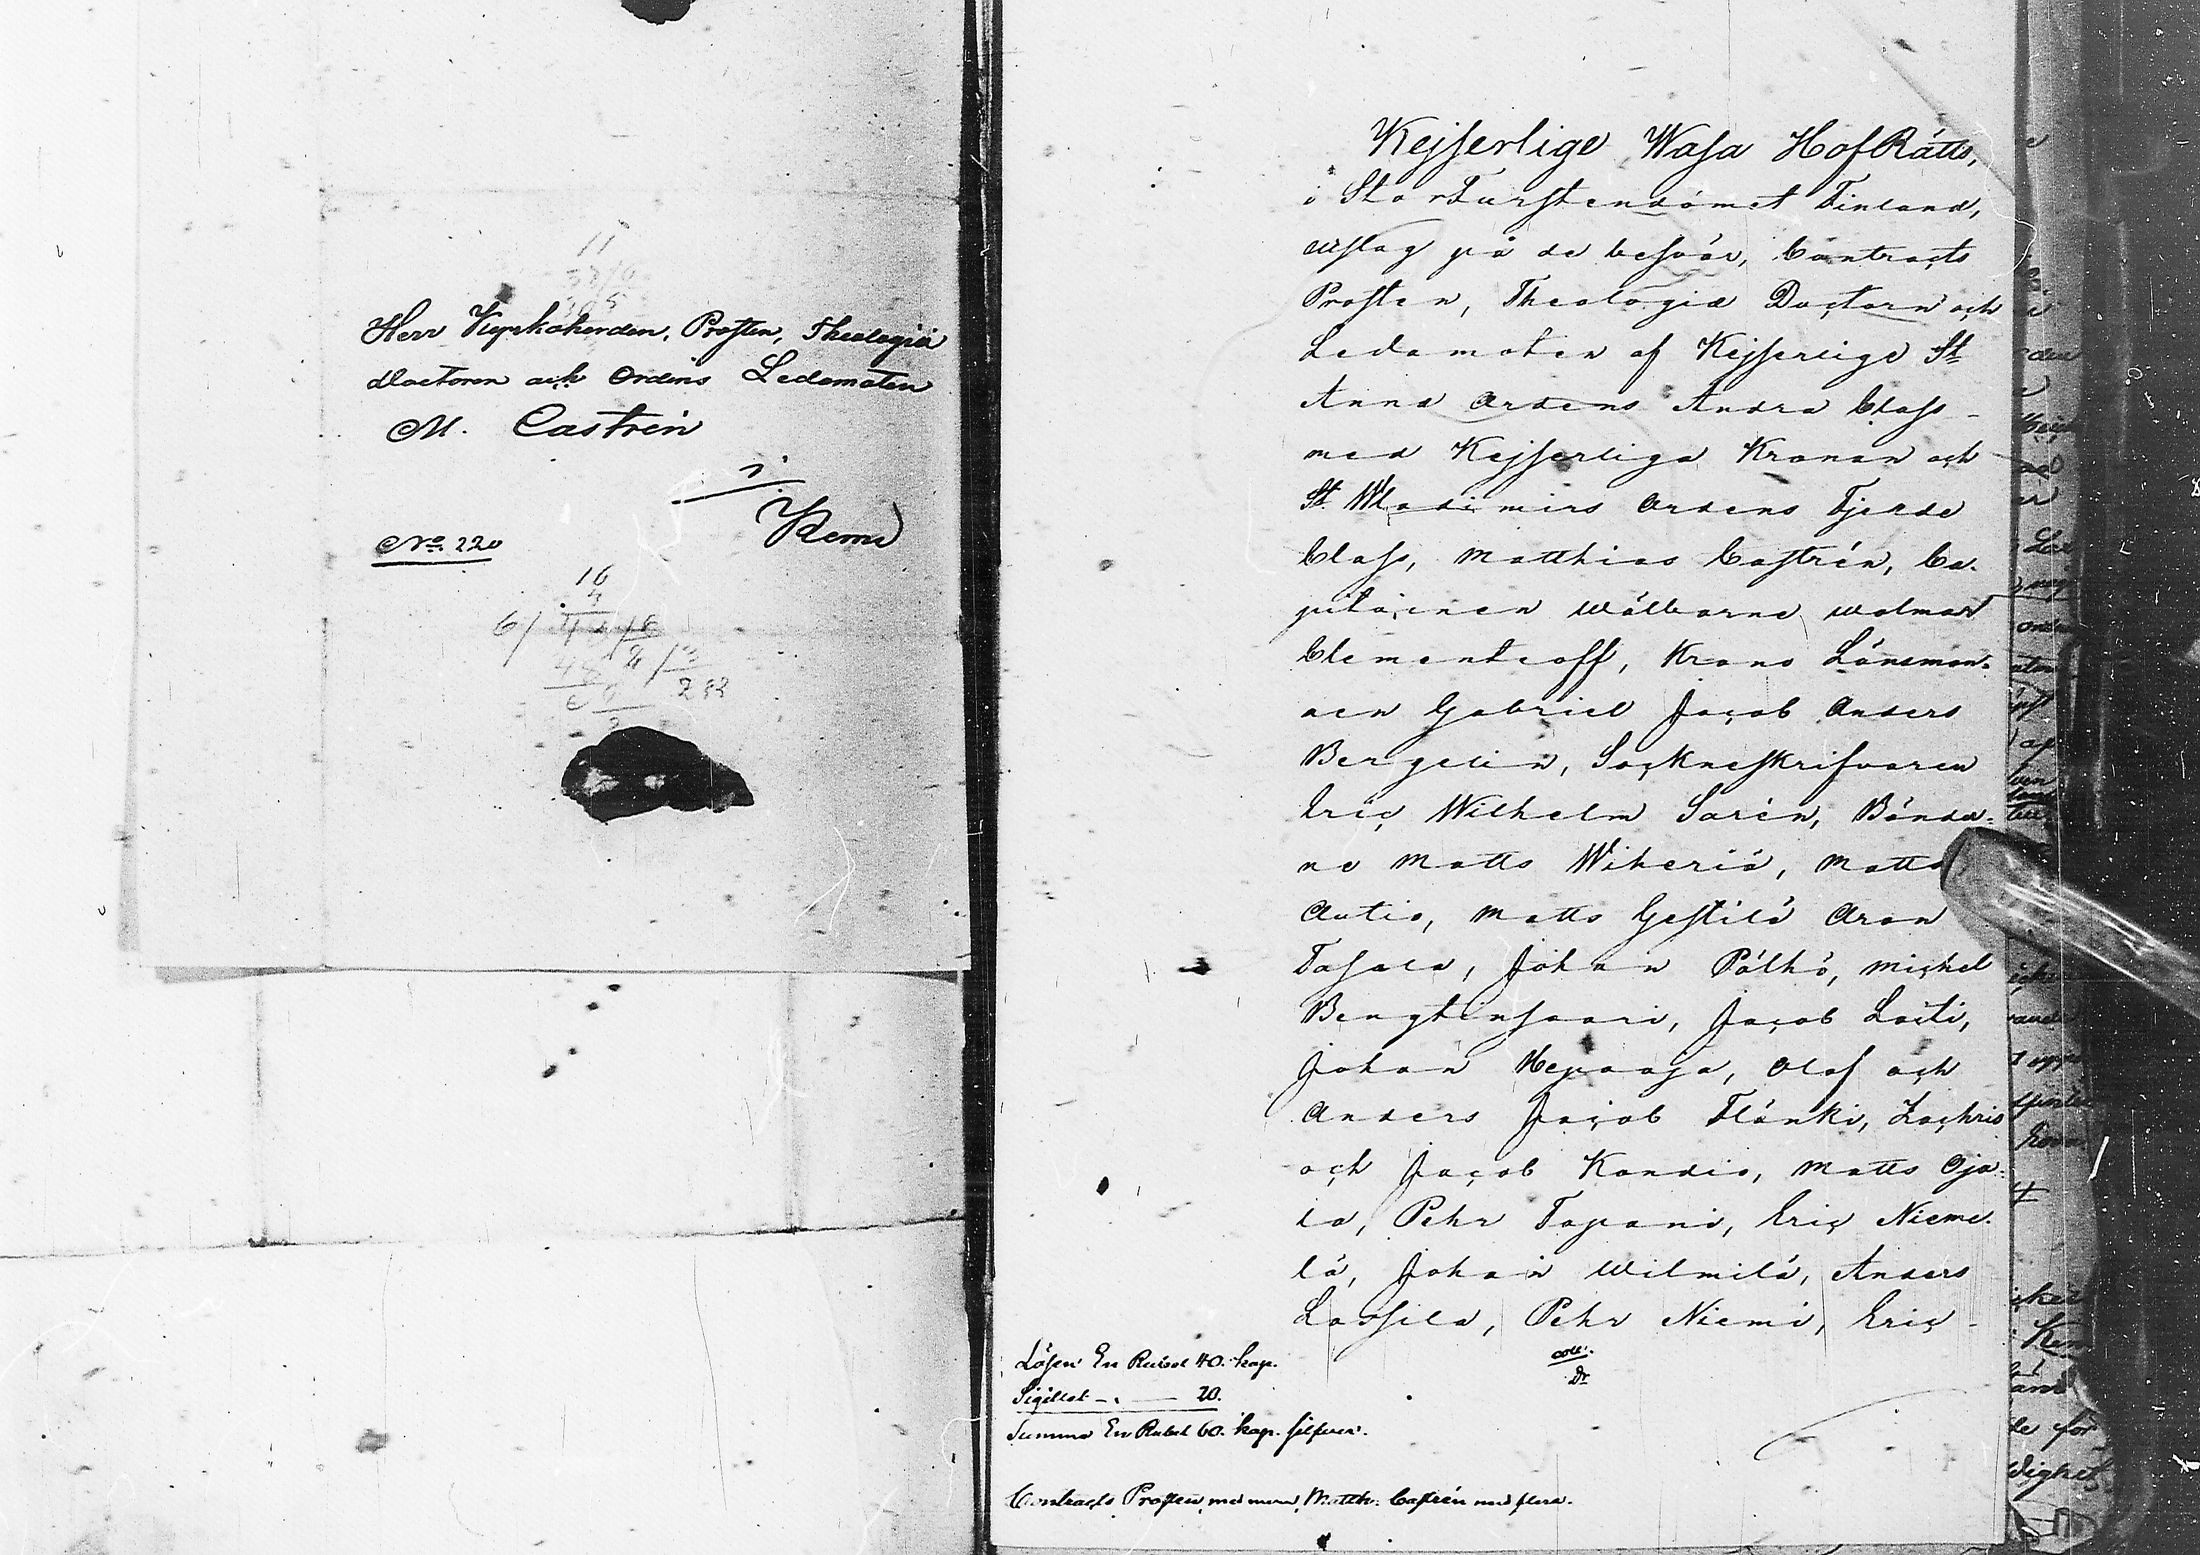 Herr Kyrkoherden, Prosten, Theologiæ
Doctoren och Ordens Ledamoten
M. Castrén
i
Kemi
No. 220
11
16
4
6/
48
288
Kejserlige Wasa HofRätts,
i StorFurstendömet Finland,
utslag på de besvär, Contracts
Prosten, Theologiæ Doctorn och
Ledamoten af Kejserlige St
Anna Ordens Andra Class
med Kejserliga Kronan och
St. Wladimirs Ordens Fjerde
Class, Matthias Castrén, Ca-
pitainen Wälborne Wolmar
Clementeoff, Krono Länsman-
nen Gabriel Jacob Anders
Bergelin, Sockneskrifvaren
Eric Wilhelm Sarén, Bönder-
ne Matts Wikeriä, Matts
Autio, Matts Gestilä Aron
Tasala, Johan Pälhö, Michel
Bengtinsaari, Jacob Laiti,
Johan Hepoaja, Olof och
Anders Jacob Flänki, Zachris
och Jacob Kandio, Matts Oja-
la, Pehr Tapani, Eric Nieme-
lä, Johan Wilmilä, Anders
Lassila, Pehr Niemi, Eric
coll:
Dr
Lösen En Rubel 40. kop.
Sigillet — 20.
Summa En Rubel 60. kop. silfver.
Contracts Prosten, med mera, Matth: Castrén med flera.